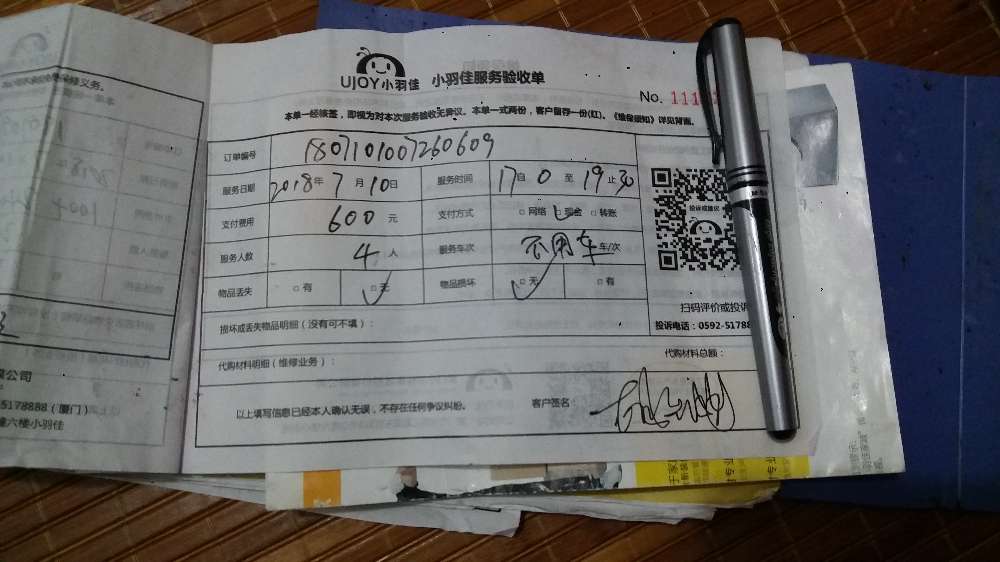 UJOY小羽佳 小羽佳服务验收单
No. 111
本单一经核签，即视为对本次服务验收无异议。本单一式两份，客户留存一份(红)。《维保须知》详见背面。
订单编号 1807101007260609
服务日期 2018年7月10日 服务时间 17自0至19止30
支付费用 600元 支付方式 □网络 □现金 □转账
投诉或建议
服务人数 4人 服务车次 不用车车/次
物品丢失 □有 □无 物品损坏 □无 □有
扫码评价或投诉
损坏或丢失物品明细（没有可不填）：
投诉电话：0592-51788
代购材料明细（维修业务）： 代购材料总额：
以上填写信息已经本人确认无误，不存在任何争议纠纷。 客户签名：
修义务。
公司
5178888（厦门）
六楼小羽佳